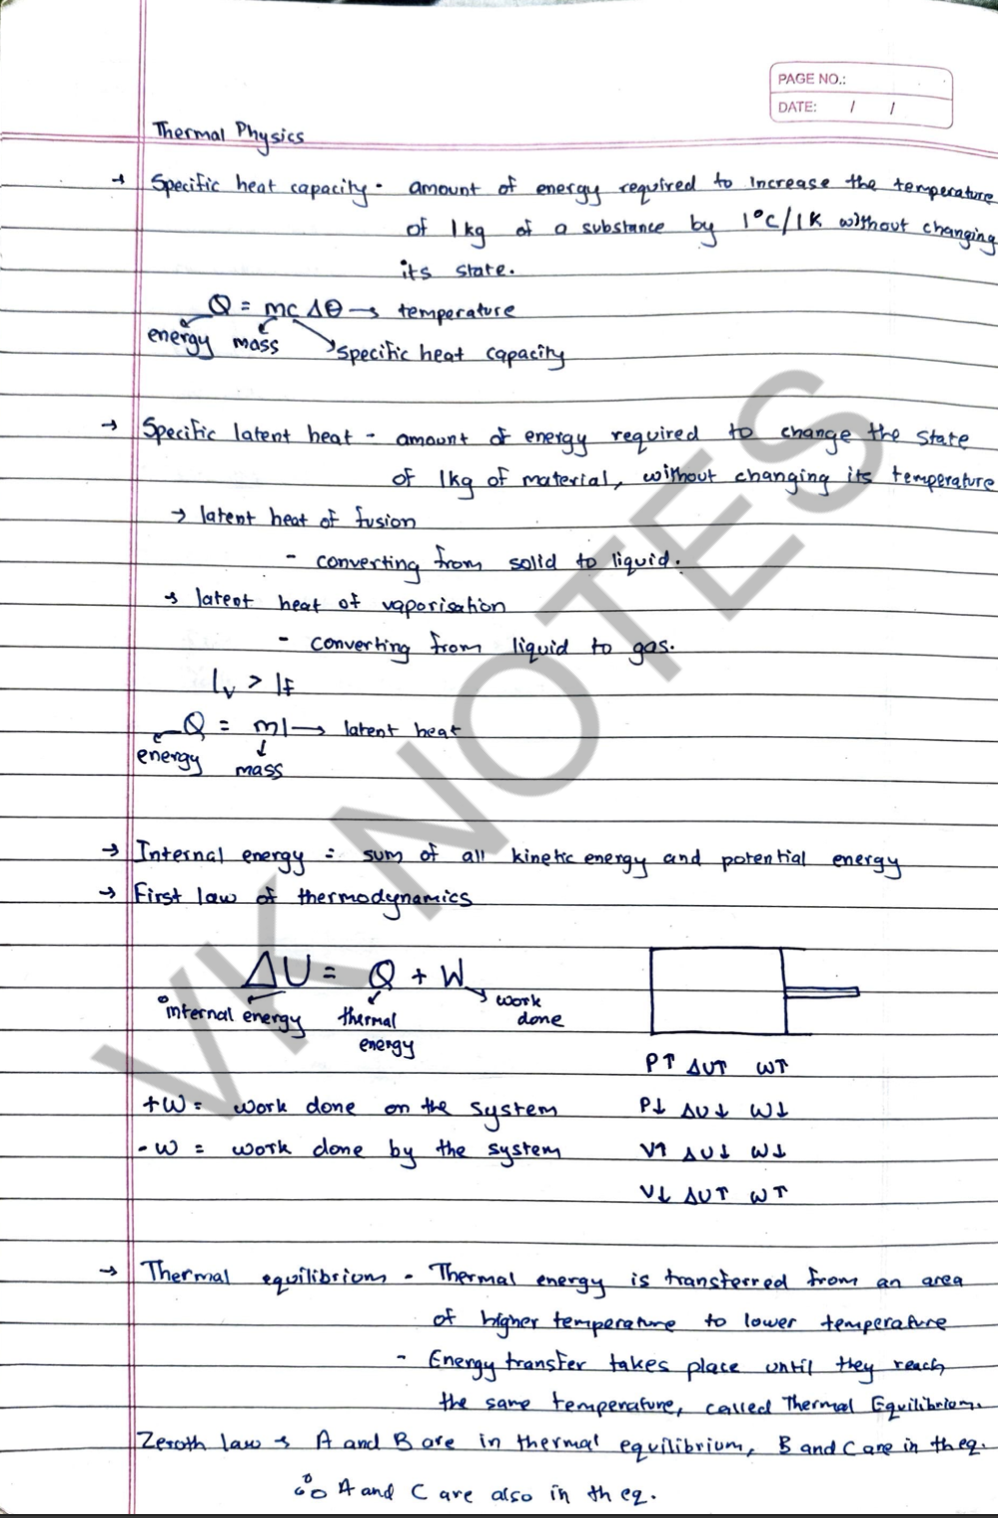 PAGE NO.:
DATE: / /
Thermal Physics
→ Specific heat capacity - amount of energy required to increase the temperature
of 1kg of a substance by 1°C/1K without changing
its state.
Q = mcΔθ → temperature
energy mass specific heat capacity
→ Specific latent heat - amount of energy required to change the state
of 1kg of material, without changing its temperature
→ latent heat of fusion
- converting from solid to liquid.
→ latent heat of vaporisation
- converting from liquid to gas.
lv > lf
Q = ml → latent heat
energy mass
→ Internal energy = sum of all kinetic energy and potential energy
→ First law of thermodynamics
ΔU = Q + W
internal energy thermal energy work done
P↑ ΔU↑ W↑
+W = work done on the system P↓ ΔU↓ W↓
-W = work done by the system V↑ ΔU↓ W↓
V↓ ΔU↑ W↑
→ Thermal equilibrium - Thermal energy is transferred from an area
of higher temperature to lower temperature
- Energy transfer takes place until they reach
the same temperature, called Thermal Equilibrium.
Zeroth law → A and B are in thermal equilibrium, B and C are in th eq.
∴ A and C are also in th eq.
VK NOTES